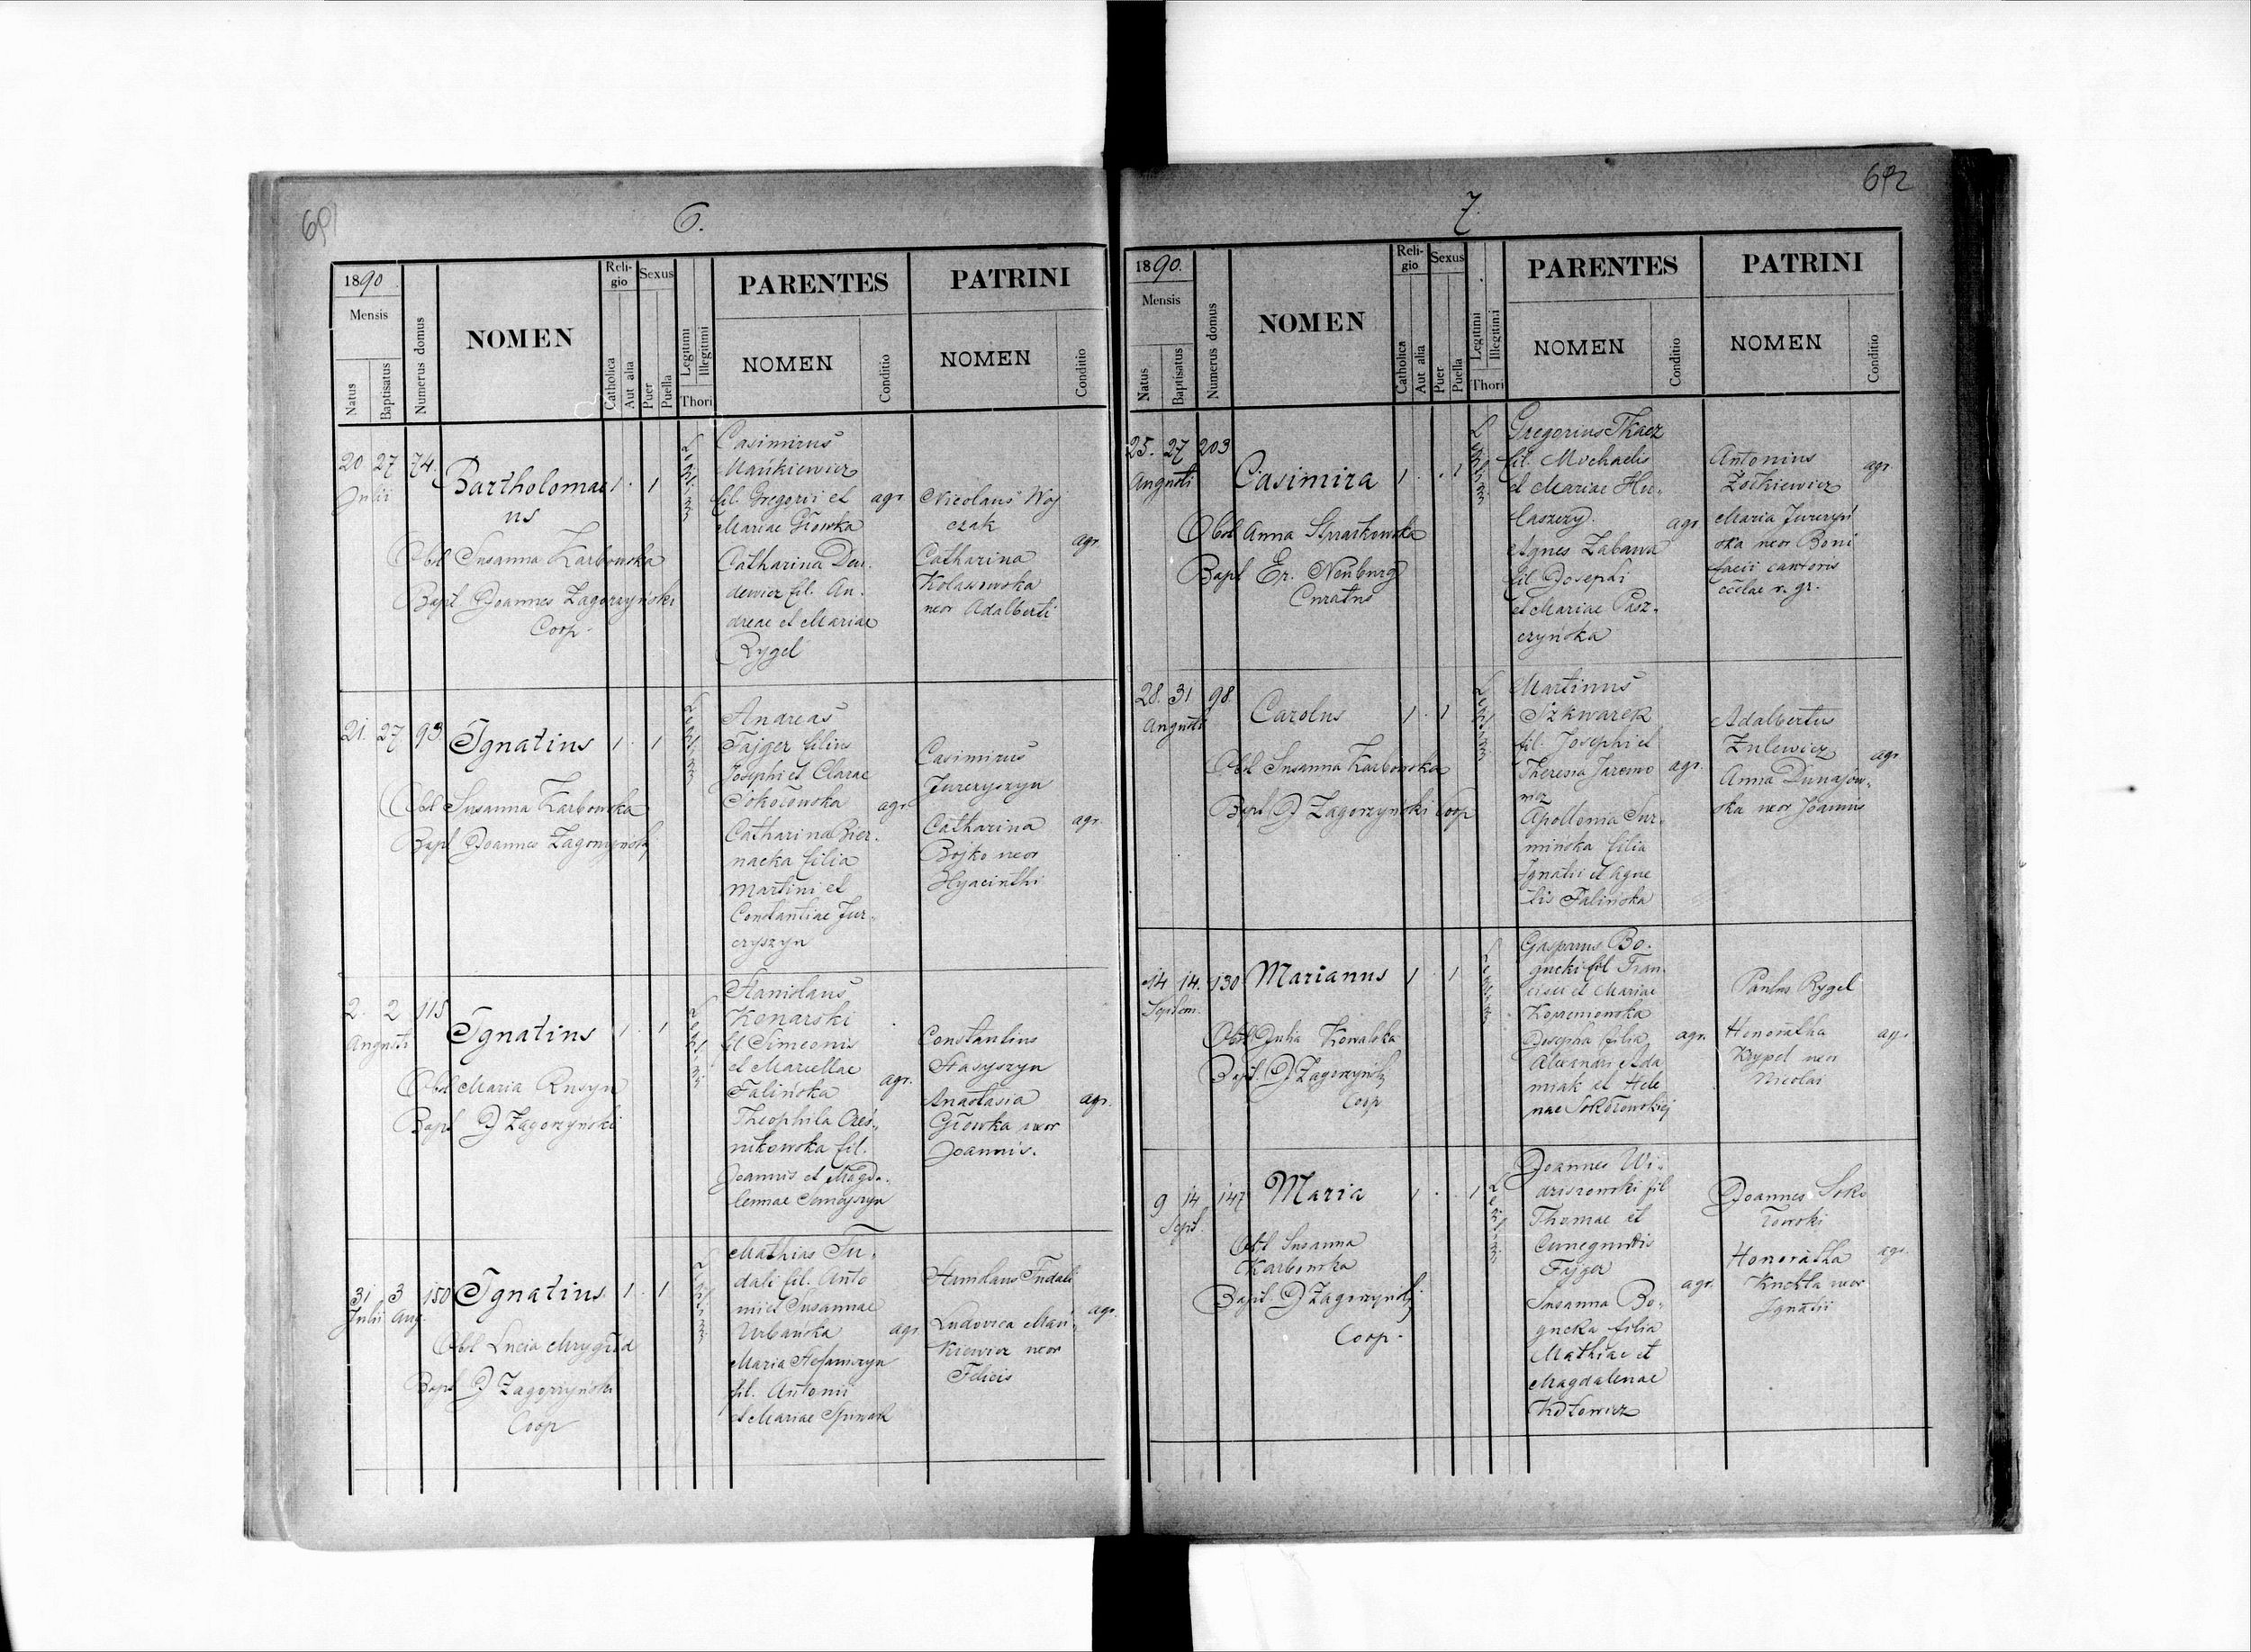 691
6.
1890.
Mensis
Natus
Baptisatus
Numerus domus
NOMEN
Reli-
gio
Catholica
Aut alia
Sexus
Puer
Puella
Legitimi
Illegitimi
Thori
PARENTES
NOMEN
Conditio
PATRINI
NOMEN
Conditio
20 27 74. Bartholomae 1 . 1
Julii
us
Obst Susanna Karbowska
Bapt Joannes Zagorzyński
Coop
Casimirus
Mańkiewicz
fil. Gregorii et agr.
Mariae Głowka
Catharina Den-
dewicz fil. An-
dreae et Mariae
Rygel
Nicolaus Woj
czak
Catharina agr.
Kolasowska
uxor Adalberti
21. 27 93 Ignatius 1 . 1
Obst Susanna Karbowska
Bapt Joannes Zagorzyński
Andreas
Fajger filius
Josephi et Clarae
Sokołowska agr.
Catharina Bier-
nacka filia
Martini et
Constantiae Jur-
czyszyn
Casimirus
Jurczyszyn
Catharina agr.
Bojko uxor
Hyacinthi
2. 2 115 Ignatius 1 . 1
Augusti
Obst Maria Rusyn
Bapt J Zagorzyński
Stanislaus
Konarski
fil Simeonis
et Marcellae
Falińska agr.
Theophila
nikowska fil.
Joannis et Magda-
lennae
Constantius
Stasyszyn
Anastasia agr.
Głowka uxor
Joannis.
31 3 150 Ignatius 1 . 1
Julii Aug.
Obst Lucia Mrygłod
Bapt J Zagorzyński
Coop
Mathias Fu-
dali fil. Anto
nii et Susannae
Urbańska agr.
Maria Stefanszyn
fil. Antonii
et Mariae Spiwak
Stanislaus Fudali
Ludovica Mań- agr.
kiewicz uxor
Felicis
692
7.
1890.
Mensis
Natus
Baptisatus
Numerus domus
NOMEN
Reli-
gio
Catholica
Aut alia
Sexus
Puer
Puella
Legitimi
Illegitimi
Thori
PARENTES
NOMEN
Conditio
PATRINI
NOMEN
Conditio
25. 27 203 Casimira 1 . . 1
Augusti
Obst Anna
Bapt Er. Neuburg
Curatus
Gregorius Tkacz
fil. Michaelis
et Mariae Hu-
agr.
Agnes Zabawa
fil. Josephi
et Mariae Pasz-
czyńska
Antonius agr.
Żołkiewicz
Maria Jurczyń
ska uxor Boni
facii cantoris
ecclae r. gr.
28. 31 98. Carolus 1 . 1
Augusti
Obst Susanna Karbowska
Bapt J Zagorzyński Coop
Martinus
Szkwarek
fil. Josephi et
Theresia Jaremo agr.
wicz
Apollonia Sur-
mińska filia
Ignatii et Agne
tis Falińska
Adalbertus
Zulewicz agr.
Anna Dunajow-
ska uxor Joannis
14 14. 130 Marianus 1 . 1
Septem.
Obst Julia Kowalska
Bapt. J Zagorzyński
Coop
Gasparus Bo-
gucki fil Fran
cisci et Mariae
Josepha filia agr.
Alexandri Ada
miak et Hele
nae Sokołowskiej
Paulus Rygel
Honoratha agr.
Krypel uxor
Nicolai
9 14 147 Maria 1 . . 1
Sept.
Obst Susanna
Karbowska
Bapt. J Zagorzyński
Coop.
Joannes Wi-
dziszowski fil
Thomae et
Cunegundis
Fajger
agr.
Susanna Bo-
gucka filia
Mathiae et
Magdalenae
Kotowicz
Joannes Soko
łowski
Honoratha agr.
Kuchta uxor
Ignatii